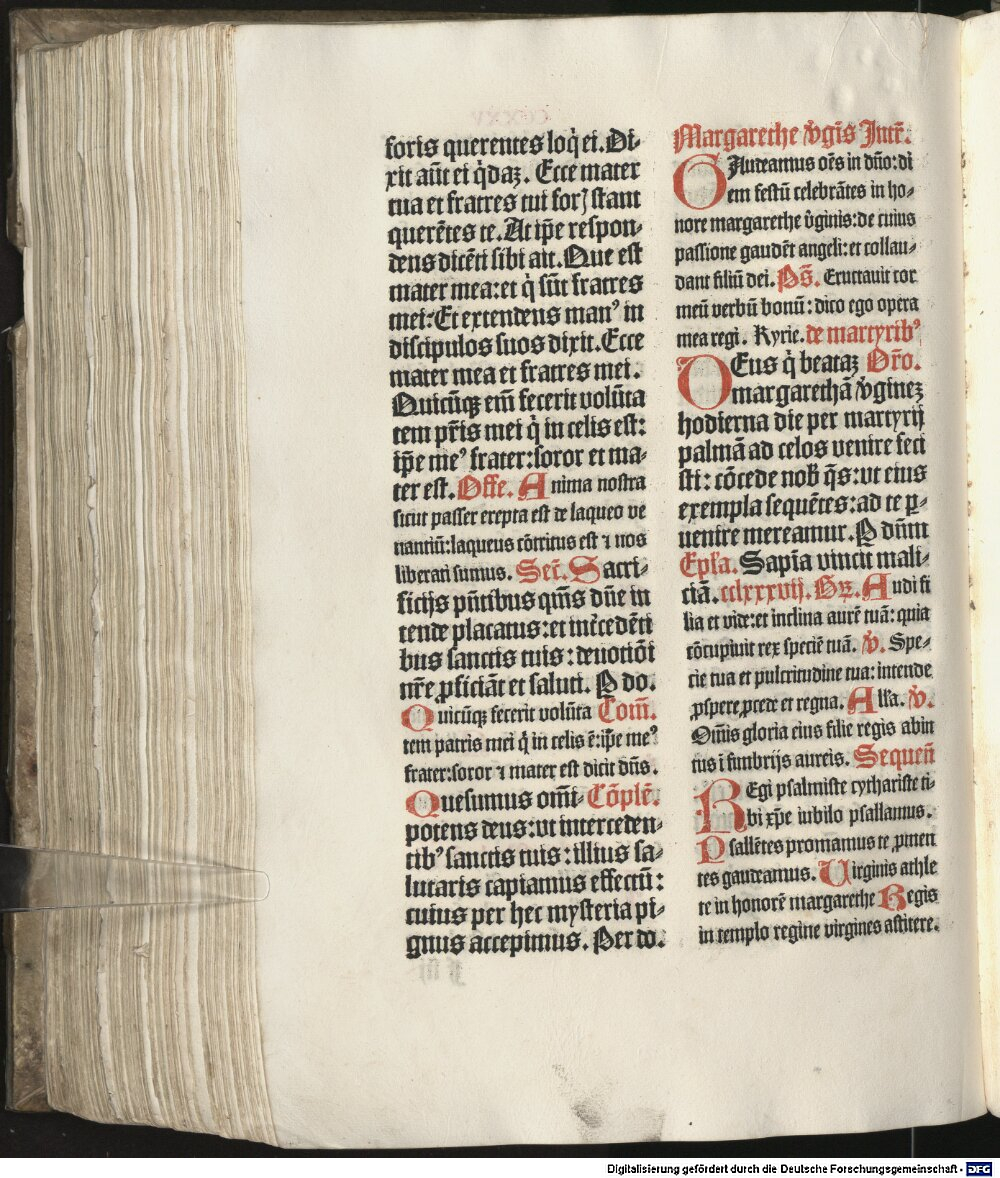 foris querentes loq̇ ei. Di-
xit aūt ei q̇daꝫ. Ecce mater
tua et fratres tui forꝭ stant
querētes te. At ip̄e respon-
dens dicēti sibi ait. Que est
mater mea: et q̇ sūt fratres
mei: Et extendens manꝰ in
discipulos suos dixit. Ecce
mater mea et fratres mei.
Quicūqꝫ em̄ fecerit volūta
tem pr̄is mei q̇ in celis est:
ip̄e meꝰ frater: soror et ma-
ter est. Offe. Anima nostra
sicut passer erepta est de laqueo ve
nantiū: laqueus cōtritus est ⁊ nos
liberati sumus. Secr̄. Sacri-
ficijs pn̄tibus qm̄s dn̄e in
tende placatus: et int̄cedēti
bus sanctis tuis: deuotiōi
nr̄e ꝓficiāt et saluti. P do.
Quicūqꝫ fecerit volūta Com̄.
tem patris mei q̇ in celis ē: ip̄e meꝰ
frater: soror ⁊ mater est dicit dn̄s.
Quesumus om̄i- Cōplē.
potens deus: vt interceden-
tibꝰ sanctis tuis: illius sa-
lutaris capiamus effectū:
cuius per hec mysteria pi-
gnus accepimus. Per do.
Margarethe v̇gīs Intr̄.
GAudeamus oēs in dn̄o: di
em festū celebrātes in ho-
nore margarethe v̇ginis: de cuius
passione gaudēt angeli: et collau-
dant filiū dei. Ps̄. Eructauit cor
meū verbū bonū: dico ego opera
mea regi. Kyrie. de martyribꝰ
DEus q̇ beataꝫ Or̄o.
margarethā v̇gineꝫ
hodierna die per martyrij
palmā ad celos venire feci
sti: cōcede nob̄ q̄s: vt eius
exempla sequētes: ad te p-
uenire mereamur. P dn̄m
Epl̄a. Sapīa vincit mali-
ciā. cclxxxvij. Gꝝ. Audi fi
lia et vide: et inclina aurē tuā: quia
cōcupiuit rex speciē tuā. v̇. Spe-
cie tua et pulcritudine tua: intende
ꝓspere ꝓcede et regna. All̄a. v̇.
Om̄is gloria eius filie regis abin
tus i fimbrijs aureis. Sequen̄
REgi psalmiste cythariste ti-
bi xp̄e iubilo psallamus.
Psallētes promamus te ꝓmen
tes gaudeamus. Uirginis athle
te in honorē margarethe Regis
in templo regine virgines astitere.
Digitalisierung gefördert durch die Deutsche Forschungsgemeinschaft - DFG